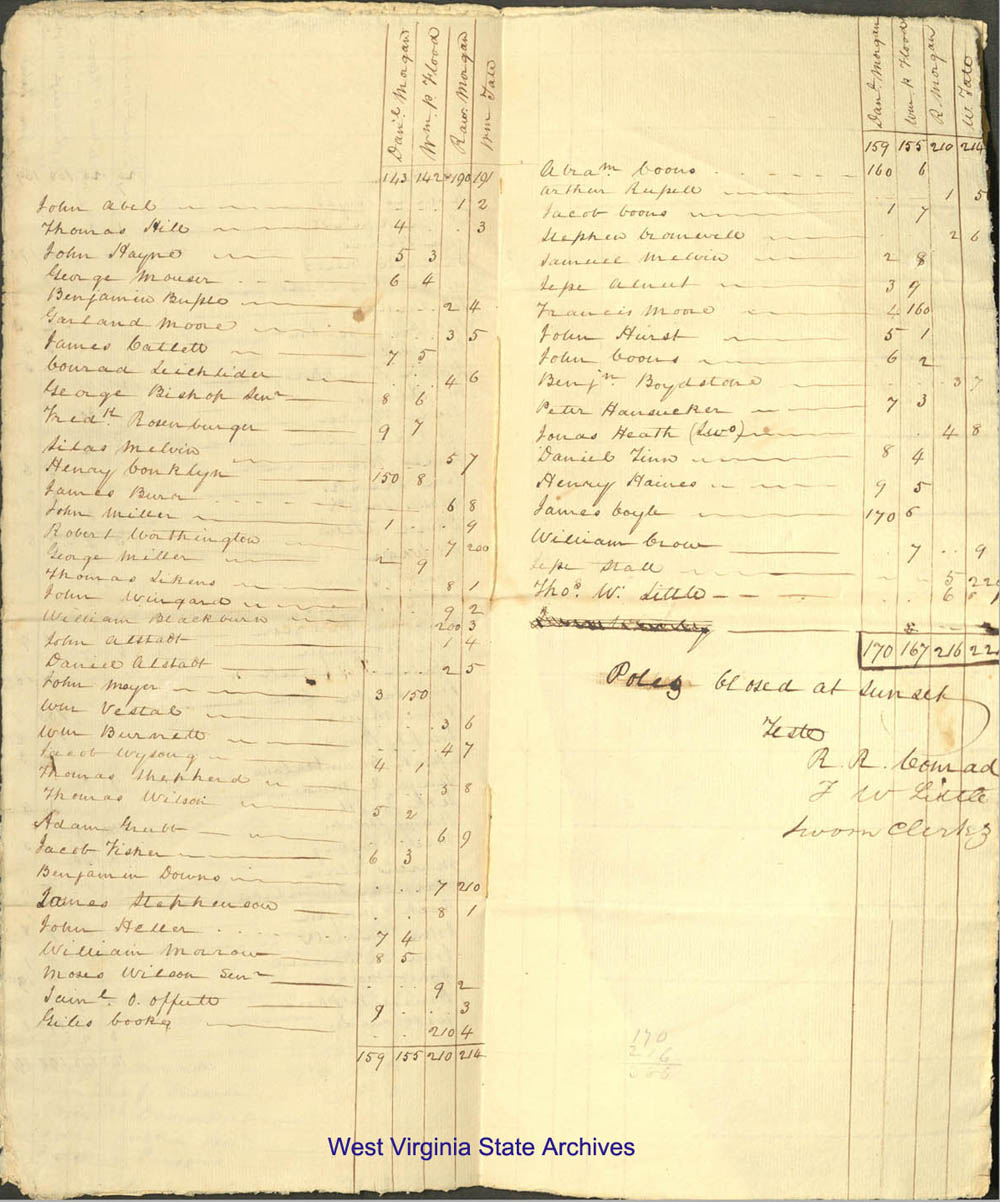 Danl. Morgan Wm. P. Flood Raw. Morgan Wm Tate
143 142 190 191
John Abel 1 2
Thomas Hill 4 3
John Hayne 5 3
George Mouser 6 4
Benjamin 2 4
Garland Moore 3 5
James Catlett 7 5
Conrad Leichlider 4 6
George Bishop Senr 8 6
Fredk. Rosenburger 9 7
Silas Melvin 5 7
Henry Conklyn 150 8
James Burr 6 8
John Miller 1 9
Robert Worthington 7 200
George Miller 2 9
Thomas Likens 8 1
John Wingard 9 2
William Blackburn 200 3
John Alstadt 1 4
Daniel Alstadt 2 5
John Moyer 3 150
Wm Vestal 3 6
Wm Burnett 4 7
Jacob Wysong 4 1
Thomas Shepherd 5 8
Thomas Wilson 5 2
Adam Grubb 6 9
Jacob Fisher 6 3
Benjamin Downs 7 210
James Stephenson 8 1
John Heller 7 4
William Morrow 8 5
Moses Wilson Senr 9 2
Saml. O. Offutt 9 3
Giles Cooke 210 4
159 155 210 214
Danl. Morgan Wm P Flood R Morgan W. Tate
159 155 210 214
Abram Coons 160 6
Arthur Russell 1 5
Jacob Coons 1 7
Stephen Cromwell 2 6
Samuel Melvin 2 8
Jesse 3 9
Francis Moore 4 160
John Hurst 5 1
John Coons 6 2
Benjn Boydstone 3 7
Peter Hansucker 7 3
Jonas Heath (Swo) 4 8
Daniel Finn 8 4
Henry Haines 9 5
James Coyle 170 6
William Crow 7 9
Jesse Stall 5 220
Thos. W. Little 6 1
170 167 216 22
Poles Closed at Sunset
Teste
R. R. Conrad
T W Little
Sworn Clerks
170
216
West Virginia State Archives